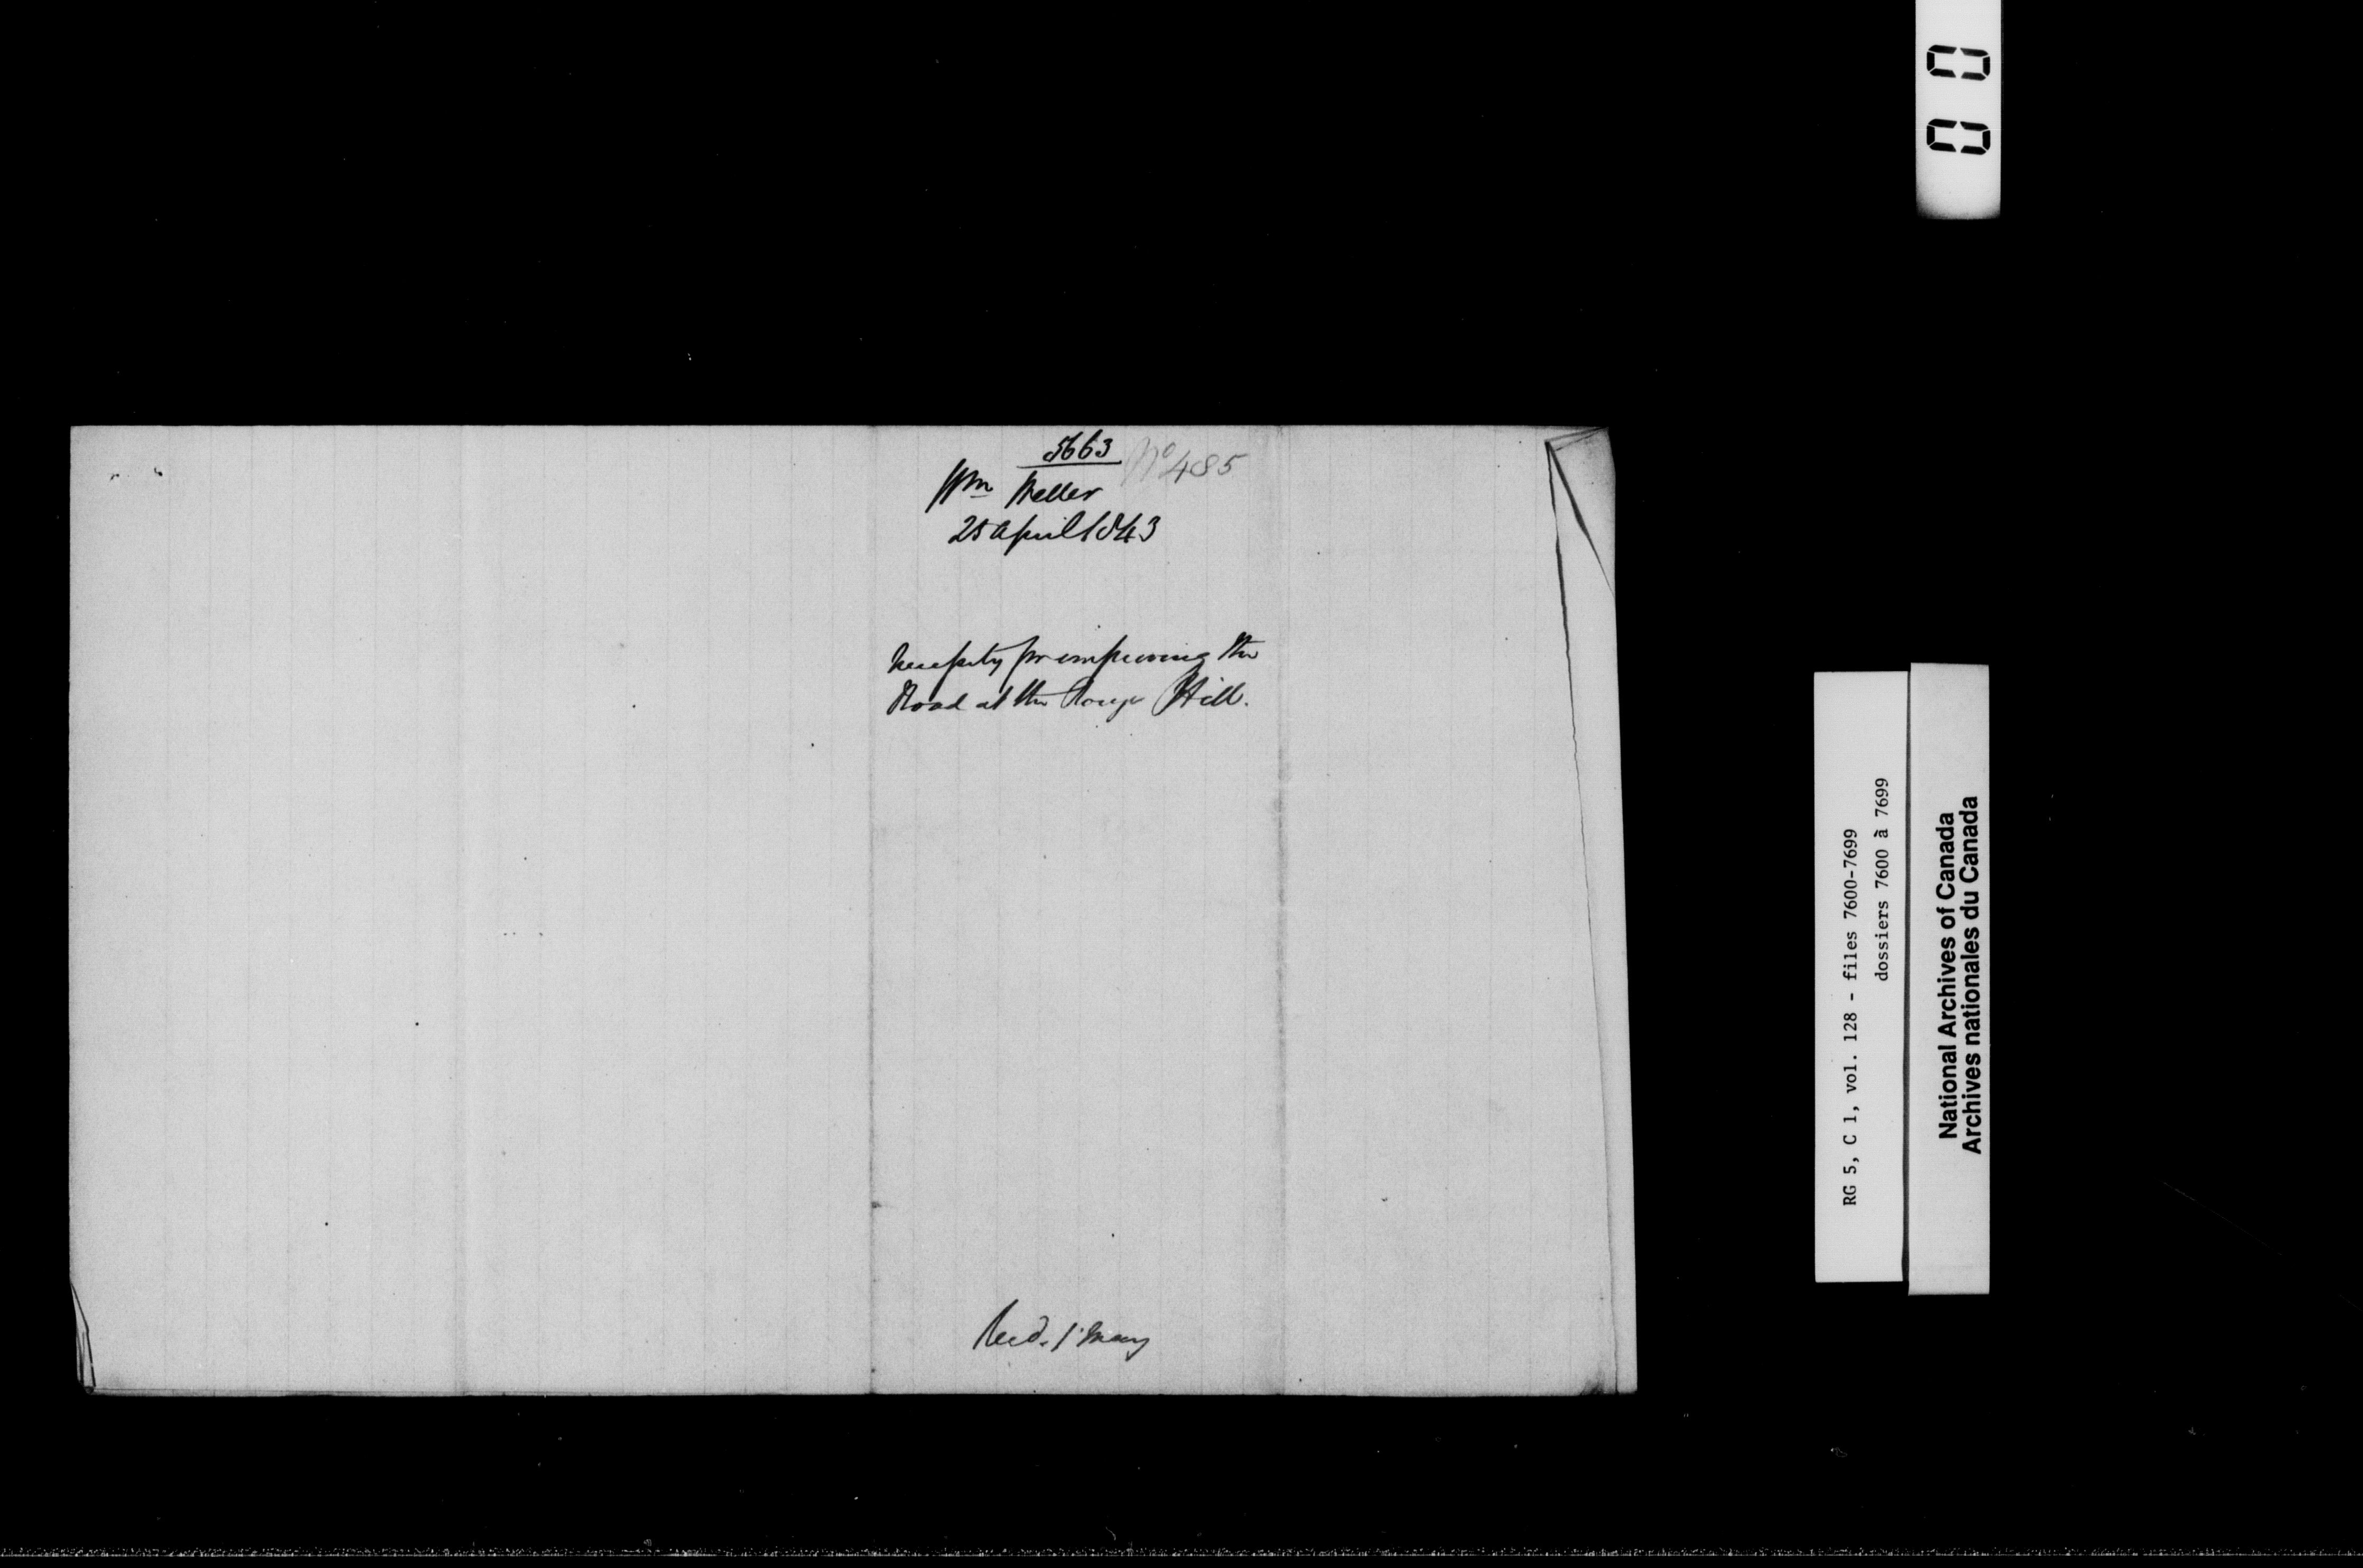 5663
No 485
Wm Weller
25 April 1843
Necessity for improving the
Road at the Rouge Hill.
Recd. 1 May
RG 5, C 1, vol. 128 - files 7600-7699
dossiers 7600 à 7699
National Archives of Canada
Archives nationales du Canada
00